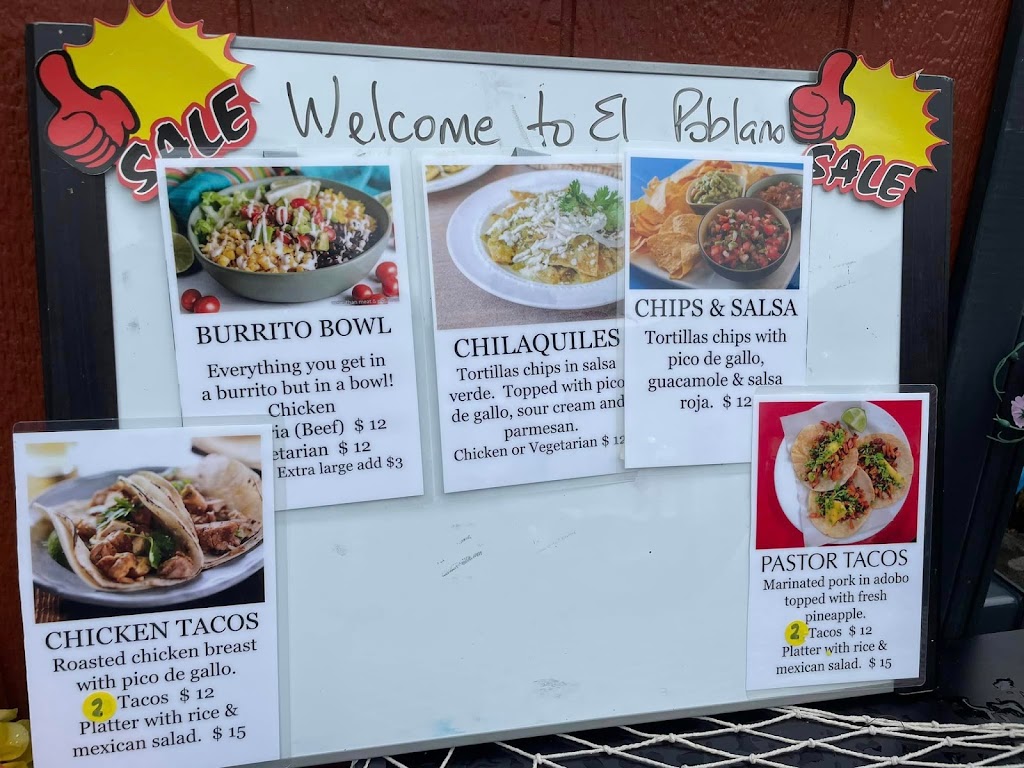 SALE
Welcome to El Poblano
SALE
BURRITO BOWL
Everything you get in
a burrito but in a bowl!
Chicken
ia (Beef) $ 12
etarian $ 12
Extra large add $3
CHILAQUILES
Tortillas chips in salsa
verde. Topped with pico
de gallo, sour cream and
parmesan.
Chicken or Vegetarian $ 12
CHIPS & SALSA
Tortillas chips with
pico de gallo,
guacamole & salsa
roja. $ 12
CHICKEN TACOS
Roasted chicken breast
with pico de gallo.
2 Tacos $ 12
Platter with rice &
mexican salad. $ 15
PASTOR TACOS
Marinated pork in adobo
topped with fresh
pineapple.
2 Tacos $ 12
Platter with rice &
mexican salad. $ 15